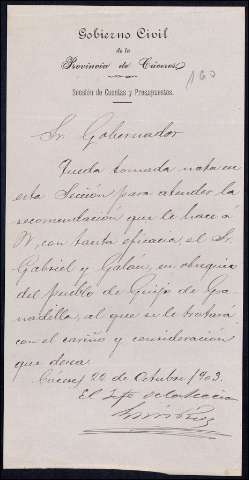 Gobierno Civil
de la
Provincia de Cáceres
160
Sección de Cuentas y Presupuestos.
Sr. Gobernador
Queda tomada nota en
esta Sección para atender la
recomendación que le hace a
V, con tanta eficacia, el Sr.
Gabriel y Galán, en obsequio
del pueblo de Guijo de Gra-
nadilla, al que se le tratará
con el cariño y consideración
que desea.
Cáceres 20 de Octubre 1903.
El Jefe de la Sección